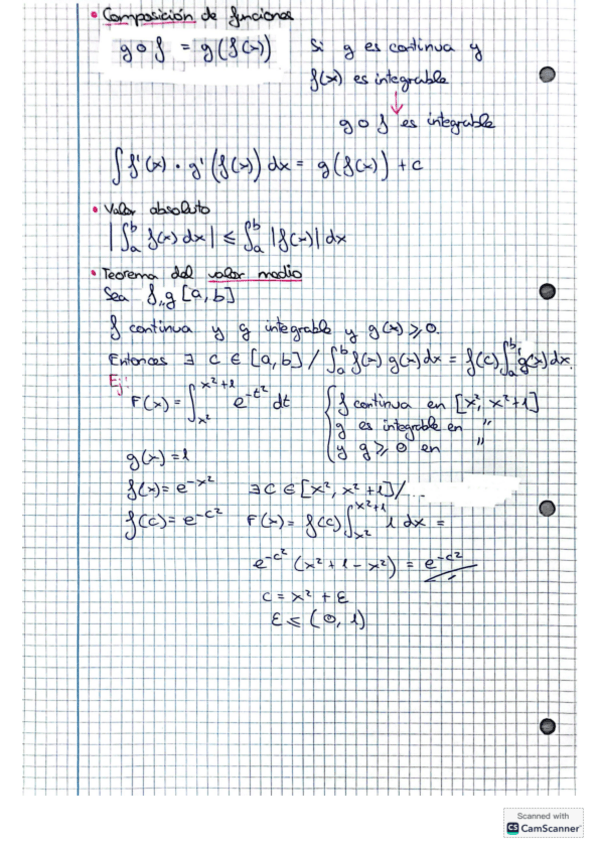 • Composición de funciones
g o f = g(f(x)) Si g es continua y
f(x) es integrable
↓
g o f es integrable
∫ f'(x) · g'(f(x)) dx = g(f(x)) + c
• Valor absoluto
|∫ₐᵇ f(x) dx| ≤ ∫ₐᵇ |f(x)| dx
• Teorema del valor medio
Sea f, g [a, b]
f continua y g integrable y g(x) ≥ 0.
Entonces ∃ c ∈ [a, b] / ∫ₐᵇ f(x) g(x) dx = f(c) ∫ₐᵇ g(x) dx.
Ej:
F(x) = ∫_{x²}^{x²+1} e^{-t²} dt { f continua en [x², x²+1]
g es integrable en "
y g ≥ 0 en "
g(x) = 1
f(x) = e^{-x²} ∃ c ∈ [x², x²+1] / ...
f(c) = e^{-c²} F(x) = f(c) ∫_{x²}^{x²+1} 1 dx =
e^{-c²} (x² + 1 - x²) = e^{-c²}
c = x² + ε
ε ≤ (0, 1)
Scanned with
CS CamScanner